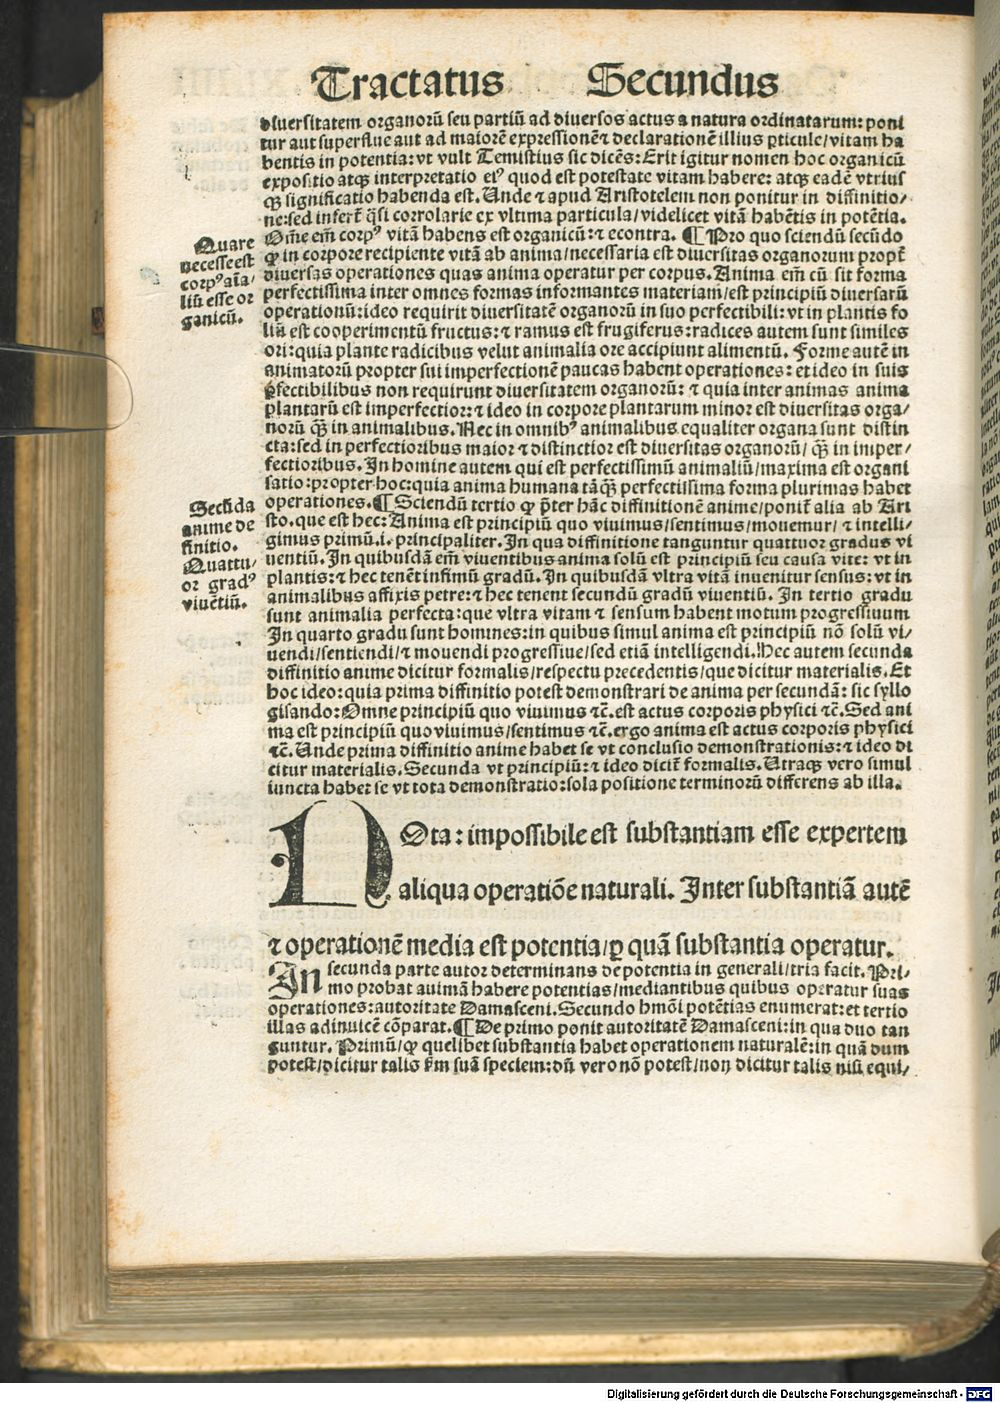 Tractatus Secundus
diuersitatem organorū seu partiū ad diuersos actus a natura ordinatarum: poni
tur aut superflue aut ad maiorē expressionē ⁊ declarationē illius pticule/vitam ha
bentis in potentia: vt vult Temistius sic dicēs: Erit igitur nomen hoc organicū
expositio atqꝫ interpretatio eiꝰ quod est potestate vitam habere: atqꝫ eadē vtrius
qꝫ significatio habenda est. Unde ⁊ apud Aristotelem non ponitur in diffinitio/
ne: sed infert̄ q̄si corrolarie ex vltima particula/videlicet vitā habētis in potētia.
Om̄e em̄ corpꝰ vitā habens est organicū: ⁊ econtra. ¶ Pro quo sciendū secūdo
ꝙ in corpore recipiente vitā ab anima/necessaria est diuersitas organorum propt̄
diuersas operationes quas anima operatur per corpus. Anima em̄ cū sit forma
perfectissima inter omnes formas informantes materiam/est principiū diuersarū
operationū: ideo requirit diuersitatē organorū in suo perfectibili: vt in plantis fo
liū est cooperimentū fructus: ⁊ ramus est frugiferus: radices autem sunt similes
ori: quia plante radicibus velut animalia ore accipiunt alimentū. Forme autē in
animatorū propter sui imperfectionē paucas habent operationes: et ideo in suis
ꝑfectibilibus non requirunt diuersitatem organorū: ⁊ quia inter animas anima
plantarū est imperfectior: ⁊ ideo in corpore plantarum minor est diuersitas orga/
norū qꝫ̄ in animalibus. Nec in omnibꝰ animalibus equaliter organa sunt distin
cta: sed in perfectioribus maior ⁊ distinctior est diuersitas organorū/ qꝫ̄ in imper/
fectioribus. In homine autem qui est perfectissimū animaliū/maxima est organi
satio: propter hoc: quia anima humana tāqꝫ̄ perfectissima forma plurimas habet
operationes. ¶ Sciendū tertio ꝙ p̄ter hāc diffinitionē anime/ponit̄ alia ab Ari
sto. que est hec: Anima est principiū quo viuimus/sentimus/mouemur/ ⁊ intelli/
gimus primū.i. principaliter. In qua diffinitione tanguntur quattuor gradus vi
uentiū. In quibusdā em̄ viuentibus anima solū est principiū seu causa vite: vt in
plantis: ⁊ hec tenēt infimū gradū. In quibusdā vltra vitā inuenitur sensus: vt in
animalibus affixis petre: ⁊ hec tenent secundū gradū viuentiū. In tertio gradu
sunt animalia perfecta: que vltra vitam ⁊ sensum habent motum progressiuum
In quarto gradu sunt homines: in quibus simul anima est principiū nō solū vi/
uendi/sentiendi/⁊ mouendi progressiue/sed etiā intelligendi. Hec autem secunda
diffinitio anime dicitur formalis/respectu precedentis/que dicitur materialis. Et
hoc ideo: quia prima diffinitio potest demonstrari de anima per secundā: sic syllo
gisando: Omne principiū quo viuimus ⁊c̄. est actus corporis physici ⁊c̄. Sed ani
ma est principiū quo viuimus/sentimus ⁊c̄. ergo anima est actus corporis physici
⁊c̄. Unde prima diffinitio anime habet se vt conclusio demonstrationis: ⁊ ideo di
citur materialis. Secunda vt principiū: ⁊ ideo dicit̄ formalis. Utraqꝫ vero simul
iuncta habet se vt tota demonstratio: sola positione terminorū differens ab illa.
Quare
necesse est
corpꝰ aīa/
liū esse or
ganicū.
Secūda
anime de
finitio.
Quattu/
or gradꝰ
viuētiū.
NOta: impossibile est substantiam esse expertem
aliqua operatiōe naturali. Inter substantiā autē
⁊ operationē media est potentia/ꝑ quā substantia operatur.
In secunda parte autor determinans de potentia in generali/tria facit. Pri/
mo probat animā habere potentias/mediantibus quibus operatur suas
operationes: autoritate Damasceni. Secundo hmōi potētias enumerat: et tertio
illas adinuicē cōparat. ¶ De primo ponit autoritatē Damasceni: in qua duo tan
guntur. Primū/ꝙ quelibet substantia habet operationem naturalē: in quā dum
potest/dicitur talis ẜm suā speciem: dū vero nō potest/non dicitur talis nisi equi/
Digitalisierung gefördert durch die Deutsche Forschungsgemeinschaft - DFG